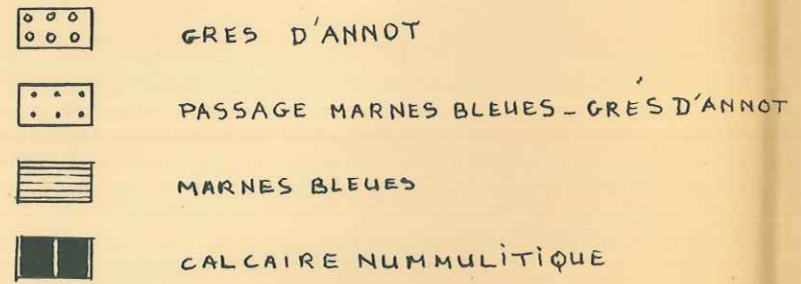 GRES D'ANNOT
PASSAGE MARNES BLEUES_GRÉS D'ANNOT
MARNES BLEUES
CALCAIRE NUMMULITIQUE